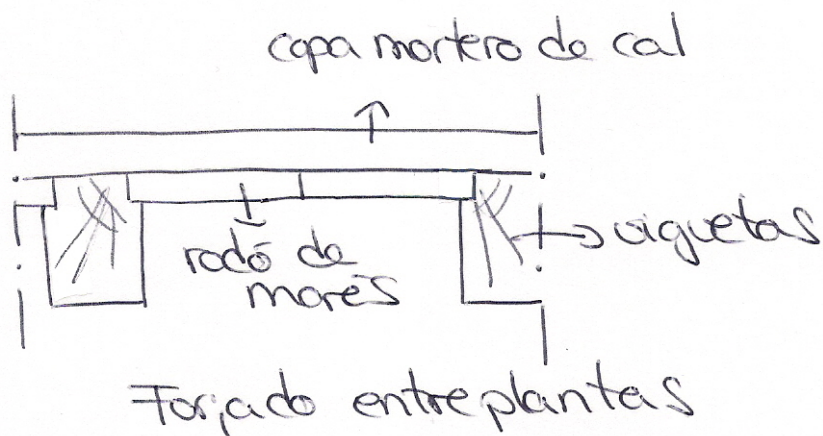 capa mortero de cal
radó de
marès
viguetas
Forjado entreplantas